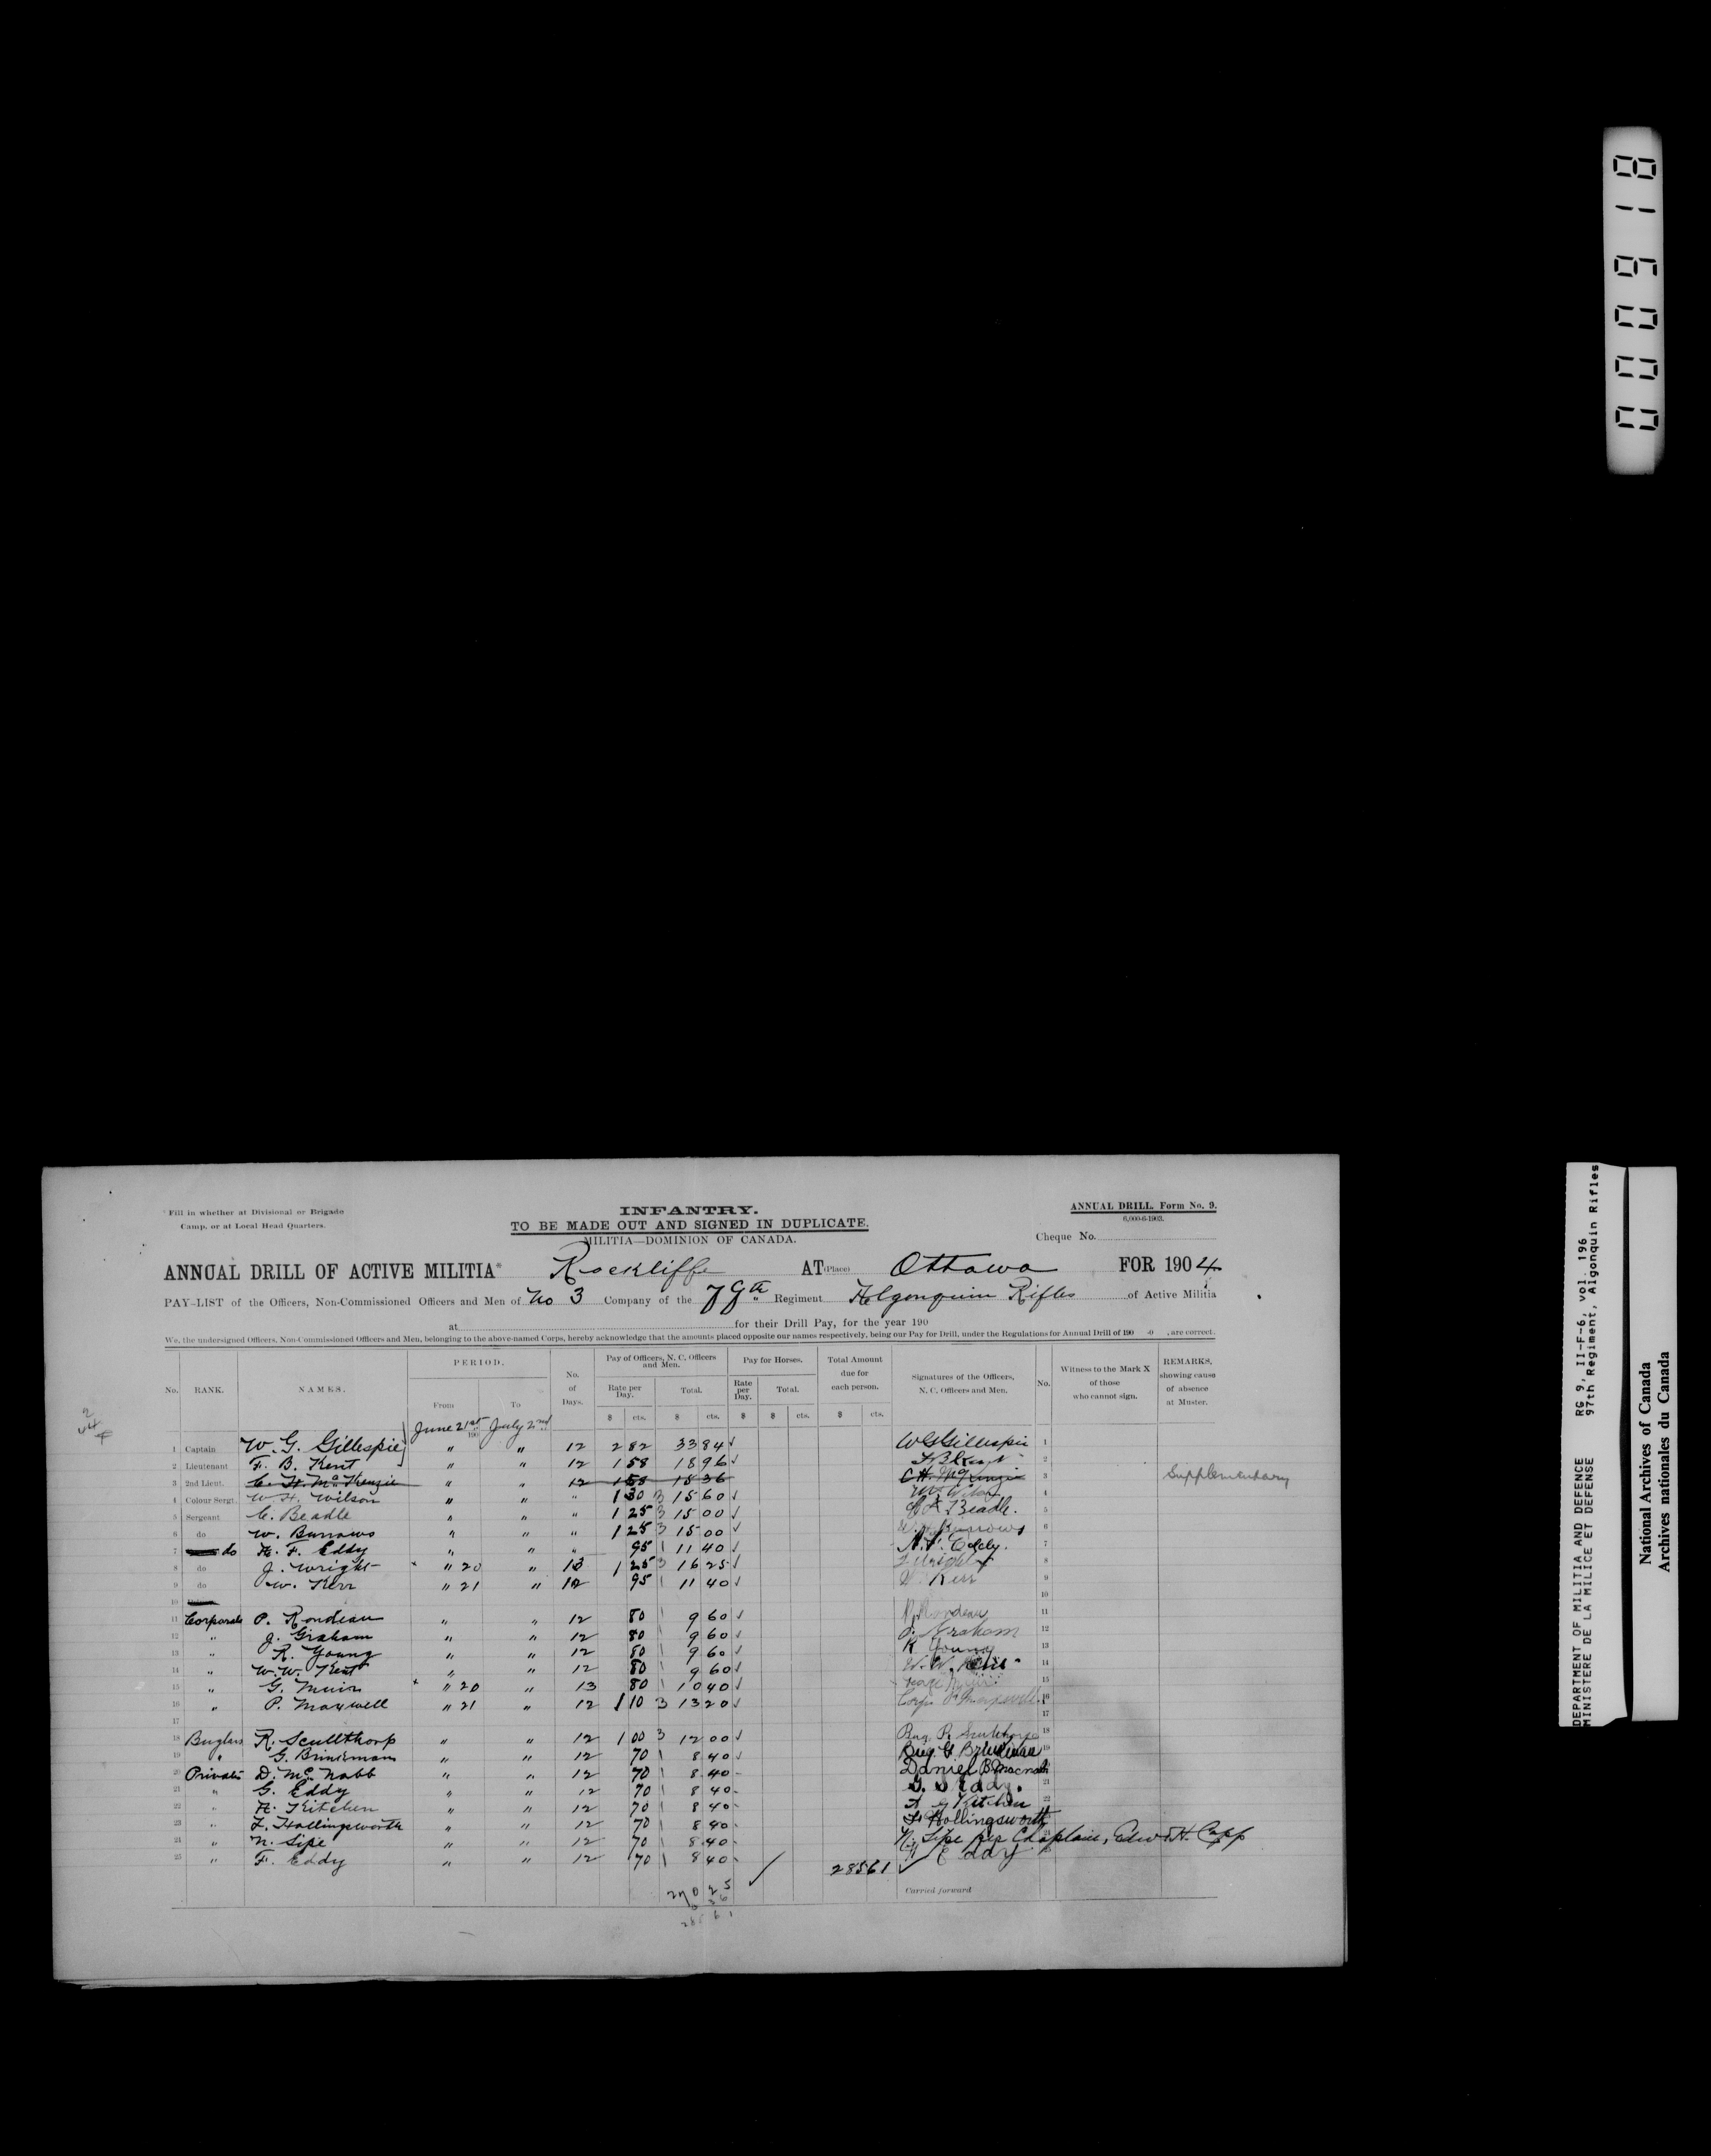 000918
* Fill in whether at Divisional or Brigade
Camp, or at Local Head Quarters.
INFANTRY.
TO BE MADE OUT AND SIGNED IN DUPLICATE.
MILITIA—DOMINION OF CANADA.
ANNUAL DRILL. Form No. 9.
6,000-6-1903.
Cheque No.
ANNUAL DRILL OF ACTIVE MILITIA* Rockliffe AT (Place) Ottawa FOR 1904
PAY-LIST of the Officers, Non-Commissioned Officers and Men of No 3 Company of the Regiment Algonquin Rifles of Active Militia
at for their Drill Pay, for the year 190
We, the undersigned Officers, Non-Commissioned Officers and Men, belonging to the above-named Corps, hereby acknowledge that the amounts placed opposite our names respectively, being our Pay for Drill, under the Regulations for Annual Drill of 190 -0 , are correct.
No. RANK. NAMES. PERIOD. From To No. of Days. Pay of Officers, N. C. Officers and Men. Rate per Day. Total. Pay for Horses. Rate per Day. Total. Total Amount due for each person. Signatures of the Officers, N. C. Officers and Men. No. Witness to the Mark X of those who cannot sign. REMARKS. showing cause of absence at Muster.
$ cts. $ cts. $ $ cts. $ cts.
June 21st 190 July 2nd
1 Captain W. G. Gillespie " " 12 2 82 33 84 ✓ W G Gillespie 1
2 Lieutenant F. B. Kent " " 12 1 58 18 96 ✓ F B Kent 2
3 2nd Lieut. C. H. McKenzie " " 12 1 58 C H McKenzie 3 Supplementary
4 Colour Sergt. W. H. Wilson " " " 1 30 3 15 60 ✓ Wilson 4
5 Sergeant C. Beadle " " " 1 25 3 15 00 ✓ Beadle. 5
6 do W. Burrows " " " 1 25 3 15 00 ✓ Burrows 6
7 do H. F. Eddy " " " 95 1 11 40 ✓ H. F. Eddy. 7
8 do J. Wright " 20 " 13 1 25 3 16 25 ✓ J Wright 8
9 do W. Kerr " 21 " 12 95 1 11 40 ✓ Kerr 9
10 10
11 Corporals P. Rondeau " " 12 80 1 9 60 ✓ P. Rondeau 11
12 " J. Graham " " 12 80 1 9 60 ✓ J. Graham 12
13 " R. Young " " 12 80 1 9 60 ✓ R Young 13
14 " W. W. Kent " " 12 80 1 9 60 ✓ W. W. Kent 14
15 " G. Muir " 20 " 13 80 1 10 40 ✓ 15
16 " P. Maxwell " 21 " 12 1 10 3 13 20 ✓ Corp. P Maxwell 16
17 17
18 Buglers R. Scullthorp " " 12 1 00 3 12 00 ✓ Bug. R. Sculthorpe 18
19 " G. Brinkman " " 12 70 1 8 40 ✓ Bug. G. 19
20 Privates D. McNabb " " 12 70 1 8 40 Daniel B Macnab
21 " G. Eddy " " 12 70 1 8 40 G. Eddy. 21
22 " A. Kitchen " " 12 70 1 8 40 A Kitchen 22
23 " F. Hollingsworth " " 12 70 1 8 40 F Hollingsworth
24 " N. Sipe " " 12 70 1 8 40 N. Sipe per Chaplain, Edw H. Capp
25 " F. Eddy " " 12 70 1 8 40 F Eddy
285 61 ✓
270 25
Carried forward
DEPARTMENT OF MILITIA AND DEFENCE RG 9, II-F-6, vol. 196
MINISTERE DE LA MILICE ET DEFENSE 97th Regiment, Algonquin Rifles
National Archives of Canada
Archives nationales du Canada